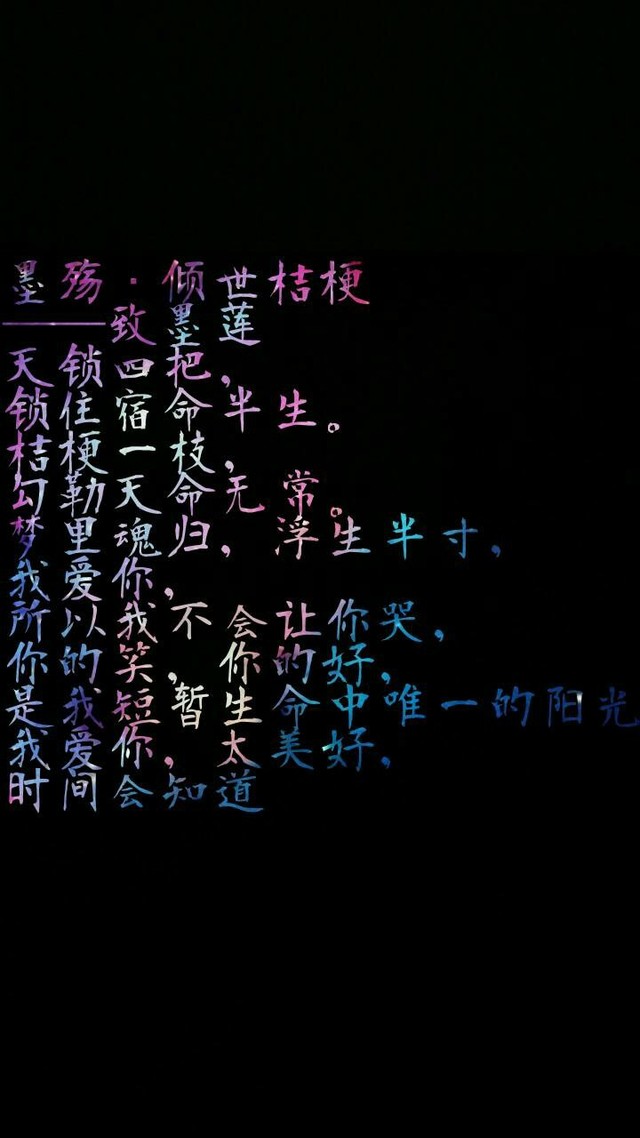 墨殇·倾世桔梗
——致墨莲
天锁四把，
锁住宿命半生。
桔梗一枝，
勾勒天命无常。
梦里魂归，浮生半寸，
我爱你，
所以我不会让你哭，
你的笑，你的好，
是我短暂生命中唯一的阳光
我爱你，太美好，
时间会知道